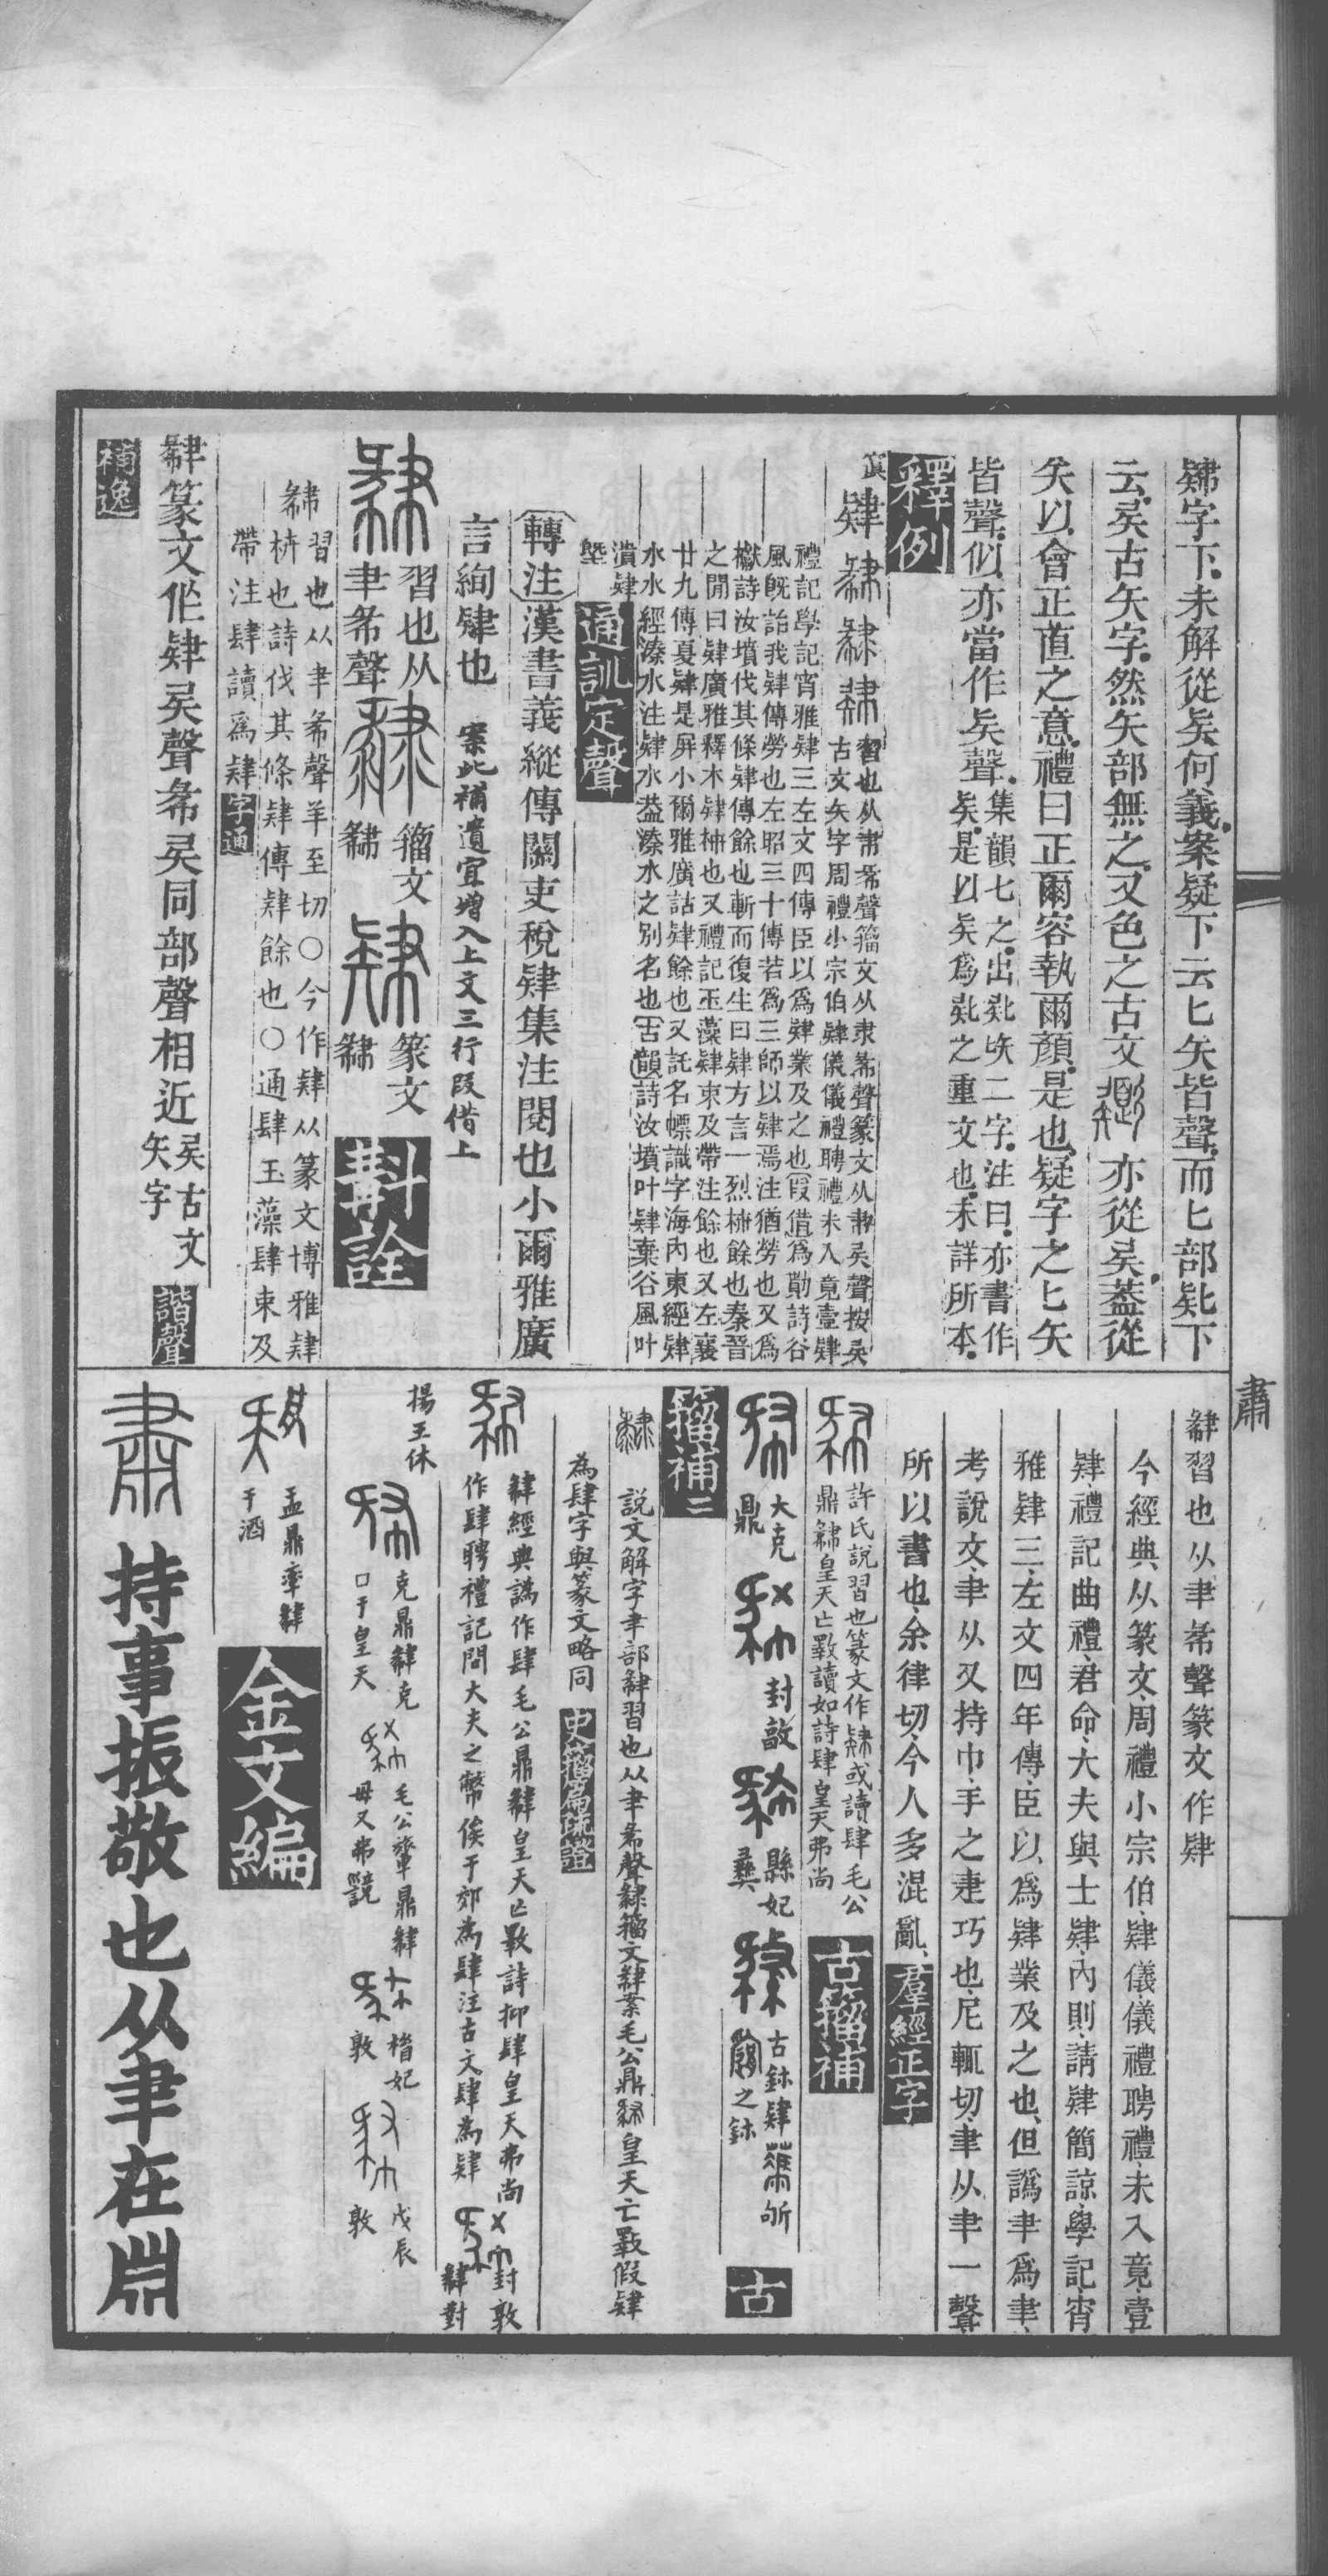 字下未解從𠤗何義案疑下云匕矢皆聲而匕部𠤕下
云𠤗古矢字然矢部無之又色之古文亦從𠤗蓋從
矢以會正直之意禮曰正爾容執爾顏是也疑字之匕矢
皆聲似亦當作𠤗聲
集韻七之出𠤕二字注曰亦書作
𠤗是以𠤗爲𠤕之重文也未詳所本
釋例
肄
習也从聿㣇聲籀文从隶㣇聲篆文从聿𠤗聲按𠤗
古文矢字周禮小宗伯肄儀儀禮聘禮未入竟壹肄
禮記學記宵雅肄三左文四傳臣以爲肄業及之也叚借爲勩詩谷
風旣詒我肄傳勞也左昭三十傳若爲三師以肄焉注猶勞也又爲
櫱詩汝墳伐其條肄傳餘也斬而復生曰肄方言一烈枿餘也秦晉
之閒曰肄廣雅釋木肄枿也又禮記玉藻肄束及帶注餘也又左襄
廿九傳夏肄是屏小爾雅廣詁肄餘也又託名幖識字海內東經肄
水水經溱水注肄水蓋溱水之別名也古韻詩汝墳叶肄棄谷風叶
潰肄
墍
通訓定聲
轉注漢書義縱傳關吏稅肄集注閱也小爾雅廣
言絢肄也
案此補遺宜增入上文三行叚借上
習也从
聿㣇聲
籀文
篆文
斠詮
習也从聿㣇聲羊至切○今作肄从篆文博雅肄
枿也詩伐其條肄傳肄餘也○通肆玉藻肆束及
帶注肆讀爲肄
字通
篆文作肄𠤗聲㣇𠤗同部聲相近
𠤗古文
矢字
諧聲
補逸
肅
習也从聿㣇聲篆文作肄
今經典从篆文周禮小宗伯肄儀儀禮聘禮未入竟壹
肄禮記曲禮君命大夫與士肄內則請肄簡諒學記宵
雅肄三左文四年傳臣以爲肄業及之也但譌聿爲聿
考說文聿从又持巾手之疌巧也尼輒切聿从聿一聲
所以書也余律切今人多混亂
羣經正字
許氏說習也篆文作肄或讀肆毛公
鼎皇天亡斁讀如詩肆皇天弗尚
古籀補
大克
鼎
封敦
縣妃
彝
古鉨肄
之鉨
古
籀補二
說文解字聿部習也从聿㣇聲籀文案毛公鼎皇天亡斁假肄
為肆字與篆文略同
史籀篇疏證
經典譌作肆毛公鼎皇天亡斁詩抑肆皇天弗尚
作肆聘禮記問大夫之幣俟于郊為肆注古文肆為肄
封敦
對
揚王休
克鼎克
口于皇天
毛公鼎
毋又弗
妃
敦
戊辰
敦
盂鼎率
于酒
金文編
肅
持事振敬也从聿在𣶒